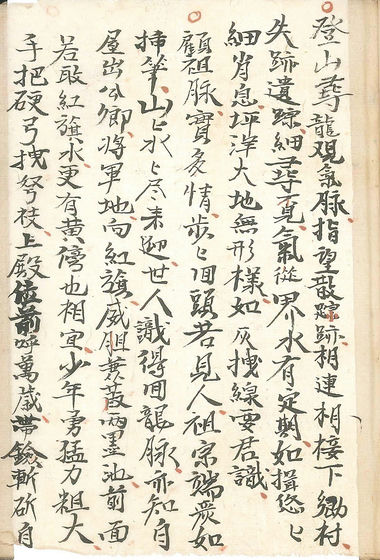 登山尋龍观氣脉指望散踪跡相連相接下鄉村
失跡遺踪細尋覓氣從界水有定期如揖悠〻
細肖息坪洋大地無形樣如灰拽線要君識
顧祖脉實多情步〻回頭若見人祖宗端嚴如
插筆山〻水〻尽来迎世人識得回龍脉亦知自
屋出公卿將軍地向紅旗威胆両墨池前面
若敢紅旗水更有黃也相宜少年勇猛力粗大
手把硬弓拽弩枝上殿位前呼萬歲帶斬斫自